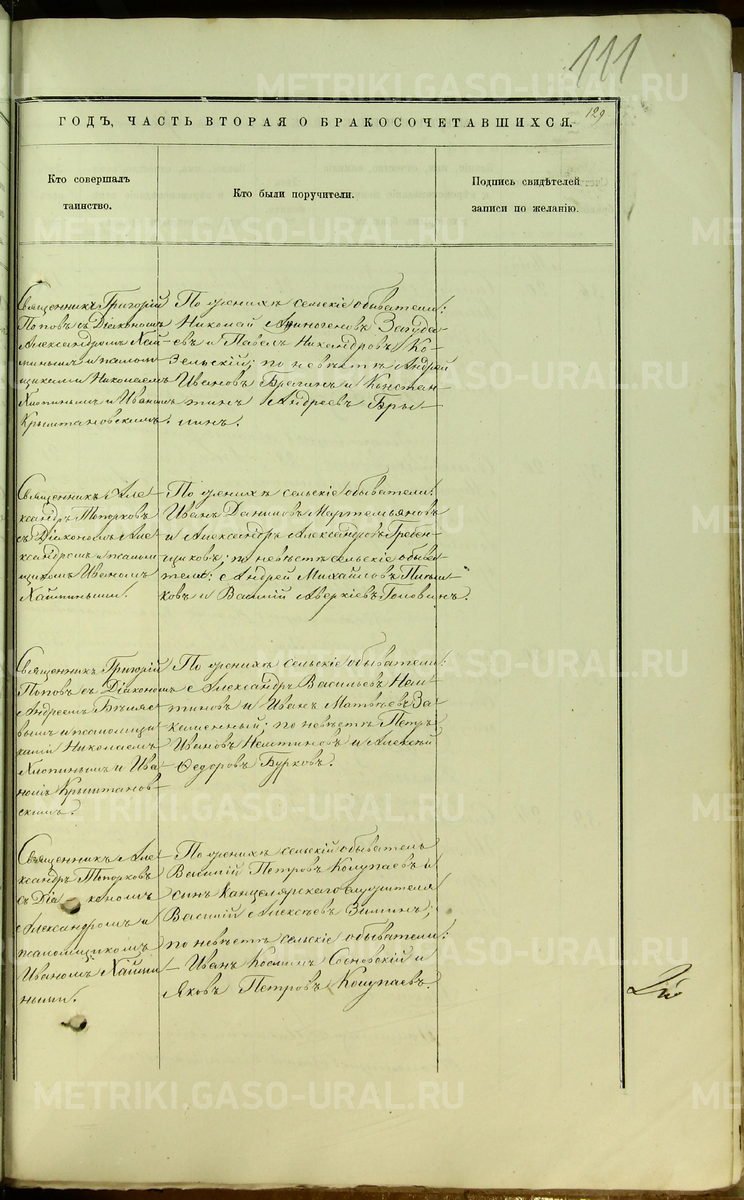 111
129
ГОДЪ, ЧАСТЬ ВТОРАЯ О БРАКОСОЧЕТАВШИХСЯ.
Кто совершалъ
таинство.
Кто были поручители.
Подпись свидѣтелей
записи по желанію.
Священникъ Григорій
Поповъ съ Діакономъ
Александромъ Хай-
минымъ и псалом-
щиками Николаемъ
Хлопинымъ и Иваномъ
Крыштановскимъ.
По женихѣ сельскіе обыватели:
Николай Афиногеновъ
евъ и Павелъ Никандровъ Ко-
зельскій; по невѣстѣ Андрей
Ивановъ и Констан-
тинъ Андреевъ Бры-
линъ.
Священникъ Але-
ксандръ Топорковъ
съ Діакономъ Але-
ксандромъ и псалом-
щикомъ Иваномъ
Хаймиными.
По женихѣ сельскіе обыватели:
Иванъ Даниловъ Мартемьяновъ
и Александръ Александровъ Гребен-
щиковъ; по невѣстѣ сельскіе обыва-
тели: Андрей Михайловъ
ковъ и Василій Аверкіевъ Головинъ.
Священникъ Григорій
Поповъ съ Діакономъ
Андреемъ Бѣляе-
вымъ и псаломщи-
ками Николаемъ
Хлопинымъ и Ива-
номъ Крыштанов-
скимъ.
По женихѣ сельскіе обыватели:
Александръ Васильевъ
и Иванъ Матвѣевъ За-
каменный; по невѣстѣ Петръ
Ивановъ и Алексѣй
Ѳедоровъ Бурковъ.
Священникъ Але-
ксандръ Топорковъ
съ Діакономъ
Александромъ и
псаломщикомъ
Иваномъ Хайми-
ными.
По женихѣ сельскій обыватель
Василій Петровъ Колупаевъ и
сынъ Канцелярскаго служителя
Василій Алексѣевъ Зиминъ;
по невѣстѣ сельскіе обыватели:
Иванъ Косминъ Сосновскій и
Яковъ Петровъ Колупаевъ.
METRIKI.GASO-URAL.RU